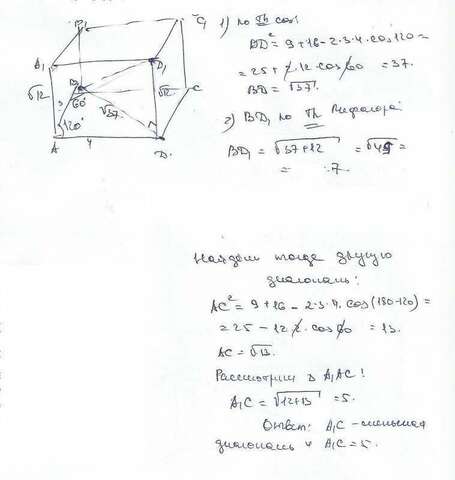 B₁
C₁
A₁
D₁
√12
B
√12
C
3
60°
√37
120°
A
4
D
1) по Th cos:
BD² = 9 + 16 - 2·3·4·cos120 =
= 25 + 2·12·cos60 = 37.
BD = √37.
2) BD₁ по Th Пифагора:
BD₁ = √37+12 = √49 =
= 7.
Найдем тогда другую
диагональ:
AC² = 9 + 16 - 2·3·4·cos(180-120) =
= 25 - 12·2·cos60 = 13.
AC = √13.
Рассмотрим Δ A₁AC:
A₁C = √12+13 = 5.
Ответ: A₁C - меньшая
диагональ и A₁C = 5.